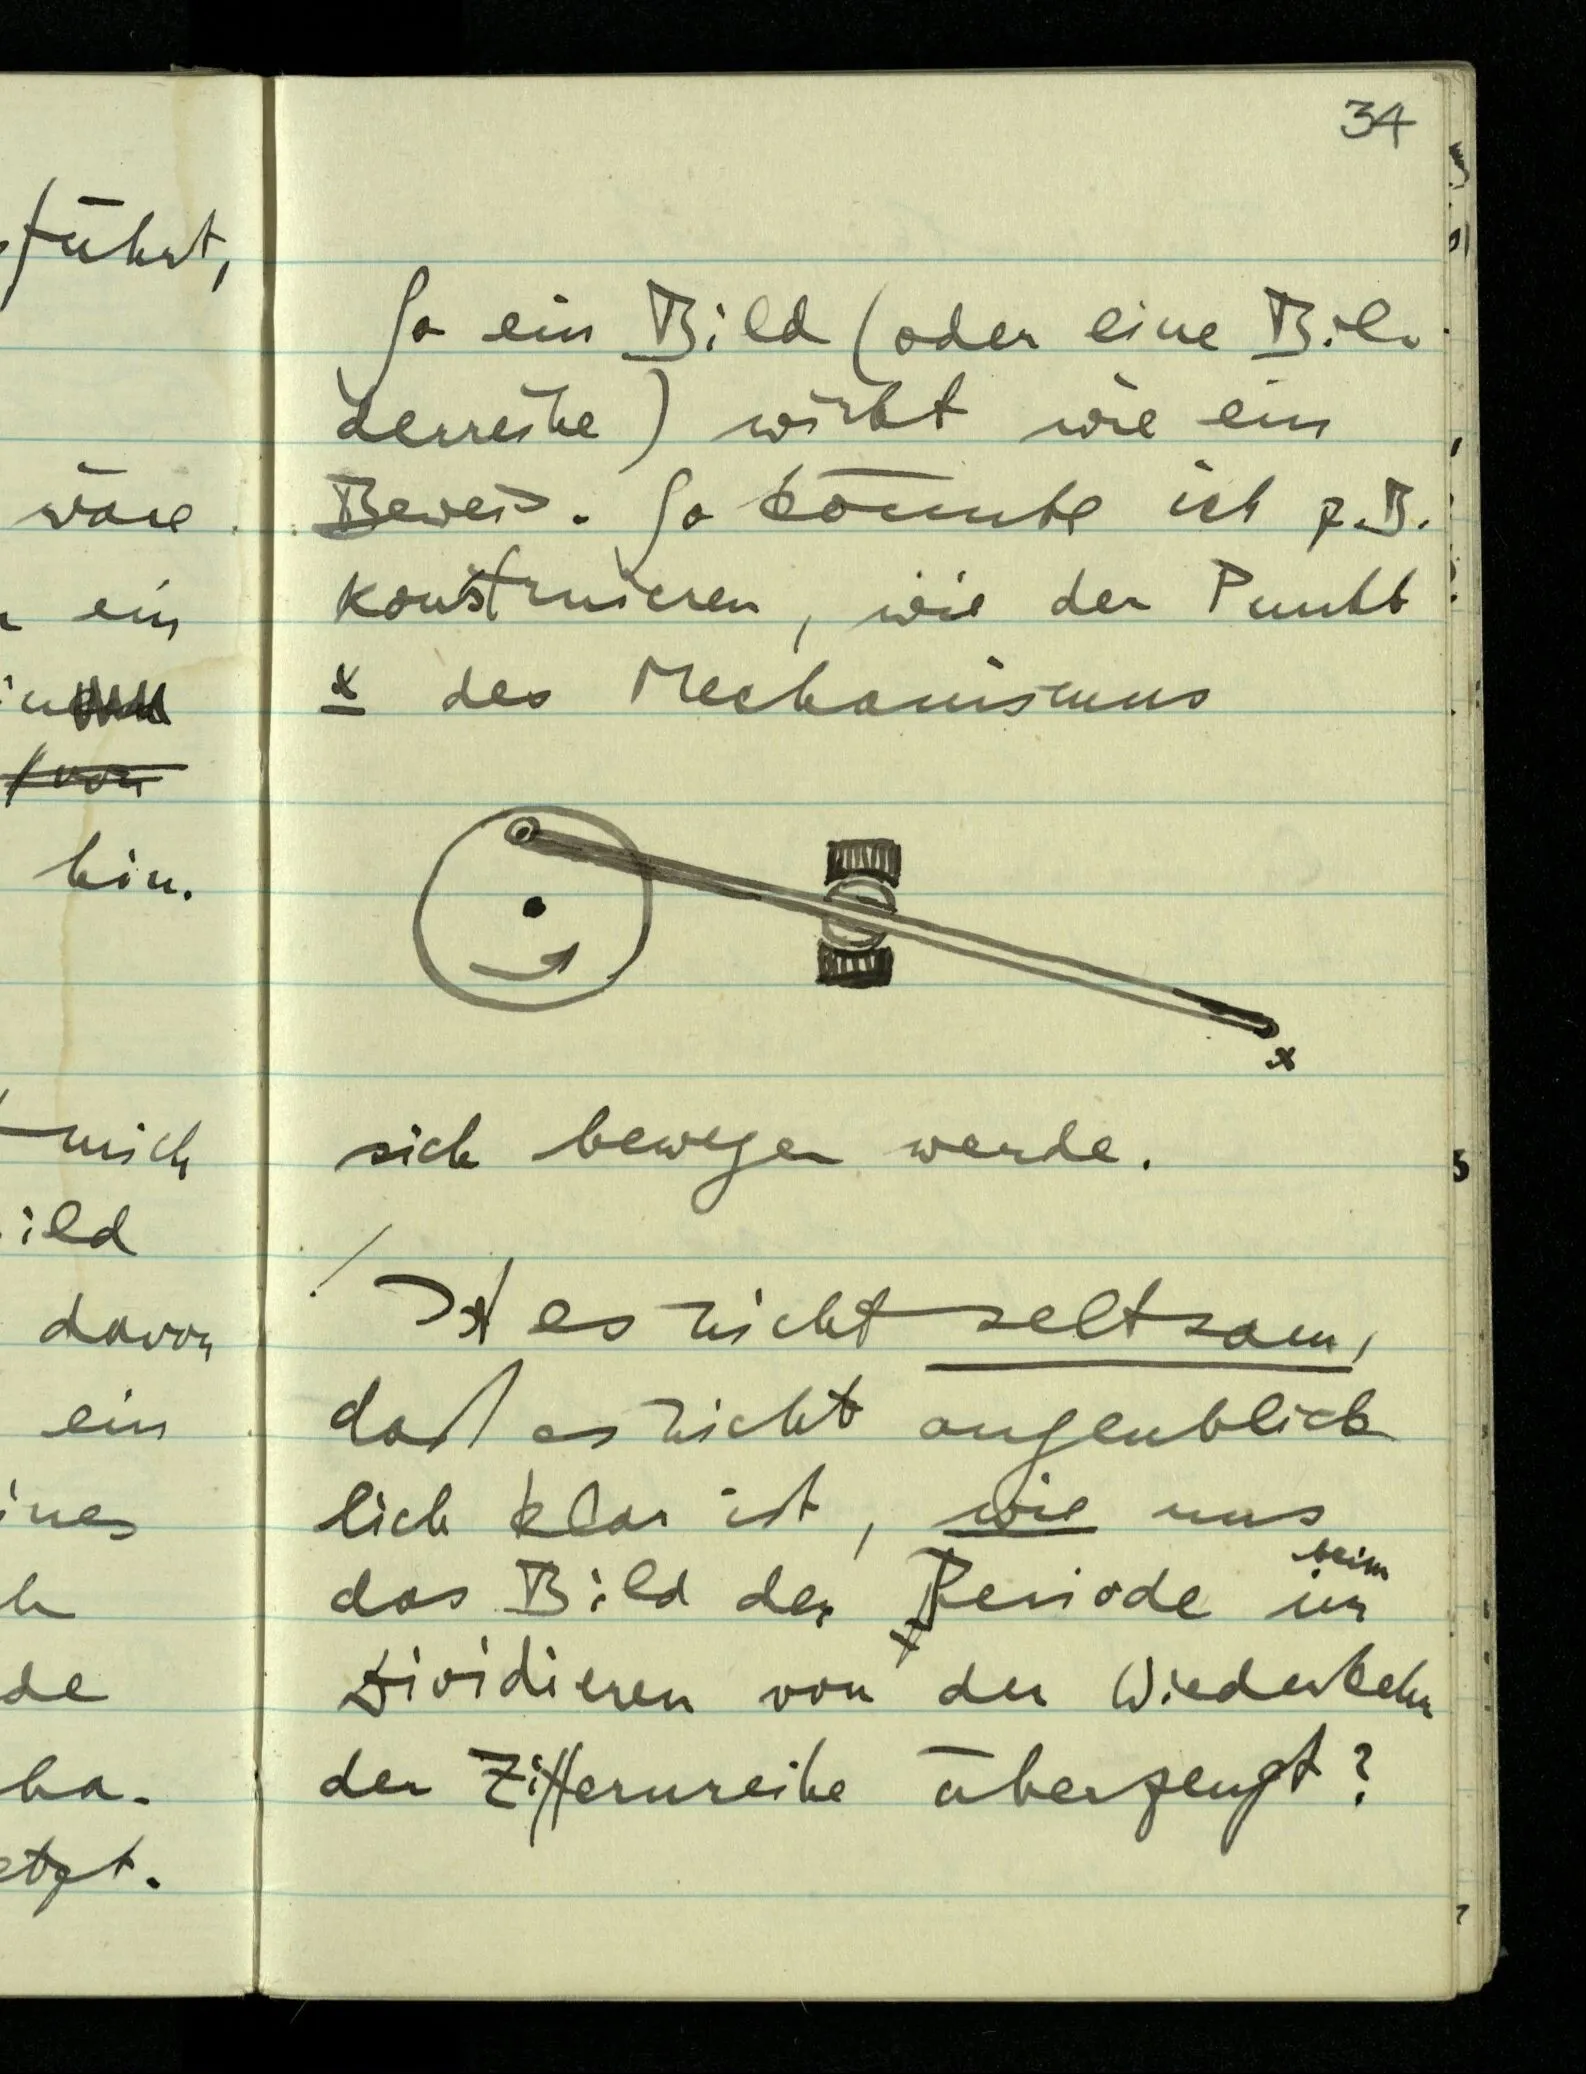 34
führt,
wäre
ein
von
hin.
mich
ild
davon
ein
ines
de
ha-
etzt.
So ein Bild (oder eine Bil-
derreihe) wirkt wie ein
Beweis. So könnte ich z.B.
konstruieren, wie der Punkt
x des Mechanismus
x
sich bewegen werde.
/ Ist es nicht seltsam,
daß es nicht augenblick
lich klar ist, wie uns
beim
das Bild der Periode im
Dividieren von der Wiederkehr
der Ziffernreihe überzeugt?